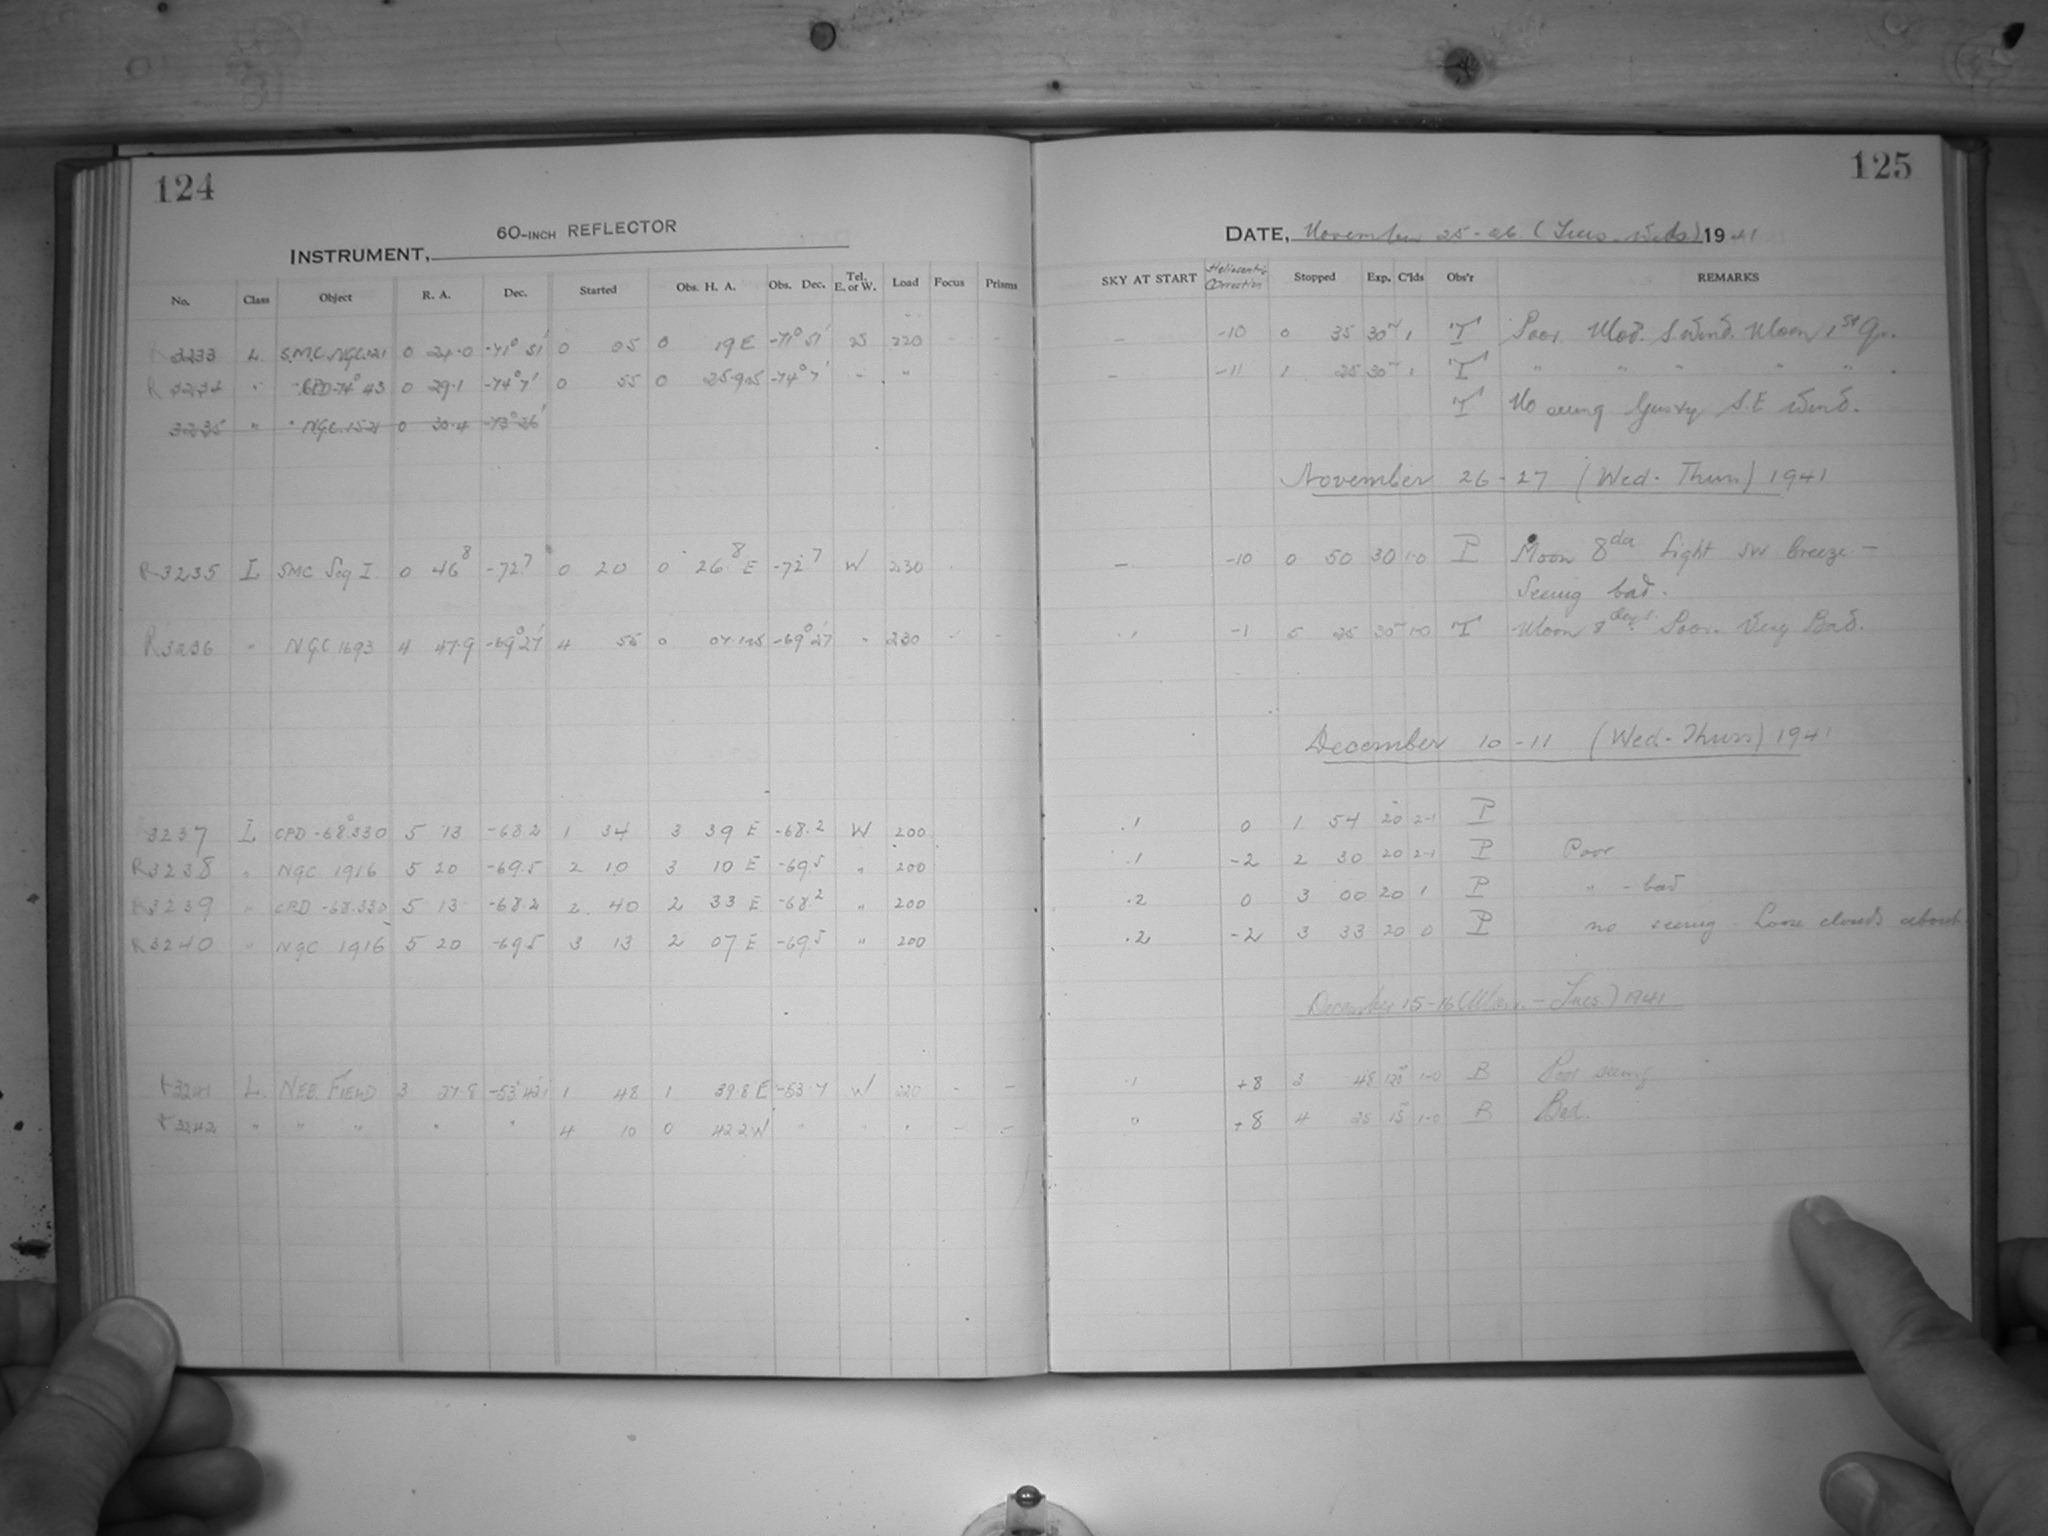 124
60-INCH REFLECTOR
INSTRUMENT,
No. Class Object R. A. Dec. Started Obs. H. A. Obs. Dec. Tel. E. or W. Load Focus Prisms
R 3233 L. S.M.C. NGC.121 0 24.0 -71° 51' 0 05 0 19 E -71° 51' W 220
R 3234 " CPD-74° 43 0 29.1 -74° 7' 0 55 0 -74° 7' - "
3235 " " NGC. 0 30.4 -73° 26'
R 3235 L SMC Seq I. 0 46 8 -72. 7 0 20 0 26. 8 E -72 7 W 230
R 3236 - NGC 1693 4 47.9 -69° 27' 4 55 0 -69° 27' " 230 - -
3237 L CPD -68°.330 5 13 -68.2 1 34 3 39 E -68.2 W 200
R3238 " NGC 1916 5 20 -69.5 2 10 3 10 E -69.5 " 200
R3239 " CPD -68.330 5 13 -68.2 2. 40 2 33 E -68.2 " 200
R3240 " NGC 1916 5 20 -69.5 3 13 2 07 E -69.5 " 200
3241 L. NEB. FIELD 3 27.8 1 48 1 39.8 E -53.7 W 220 - -
3242 " " " " " 4 10 0 42.2 W " " " - -
125
DATE, November 25-26. (Tues. Weds) 1941
SKY AT START Heliocentric Correction Stopped Exp. C'lds Obs'r REMARKS
- -10 0 35 30m 1 T Poor. Mod. S. Wind. Moon 1st Qr.
- -11 1 25 30m 1 T " " " " " .
T No seeing Gusty S.E Wind.
November 26-27 (Wed-Thurs) 1941
- -10 0 50 30 1-0 P Moon 8da Light SW breeze -
Seeing bad.
.1 -1 5 25 30m 1-0 T Moon 8 days. Poor. Very Bad.
December 10-11 (Wed-Thurs) 1941
.1 0 1 54 20 2-1 P
.1 -2 2 30 20 2-1 P Poor
.2 0 3 00 20 1 P " - bad
.2 -2 3 33 20 0 P no seeing - Loose clouds about.
December 15-16 (Mon. - Tues.) 1941
.1 +8 3 48 120m 1-0 B Poor seeing
0 +8 4 25 15 1-0 B Bad.